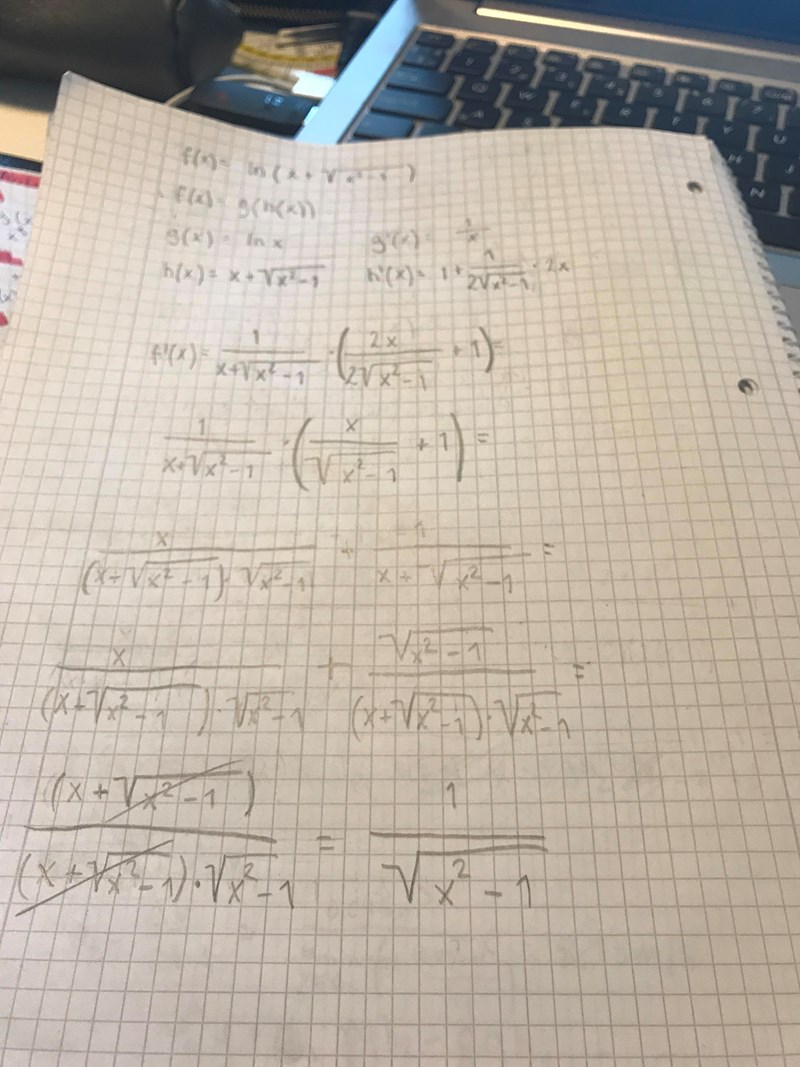 f(x) = ln(x + √(x² - 1))
f(x) = g(h(x))
g(x) = ln x g'(x) = 1/x
h(x) = x + √(x² - 1) h'(x) = 1 + 1/(2√(x² - 1)) · 2x
f'(x) = 1/(x + √(x² - 1)) · (2x/(2√(x² - 1)) + 1) =
1/(x + √(x² - 1)) · (x/√(x² - 1) + 1) =
x/((x + √(x² - 1)) · √(x² - 1)) + 1/(x + √(x² - 1)) =
x/((x + √(x² - 1)) · √(x² - 1)) + √(x² - 1)/((x + √(x² - 1)) · √(x² - 1)) =
(x + √(x² - 1))/((x + √(x² - 1)) · √(x² - 1)) = 1/√(x² - 1)